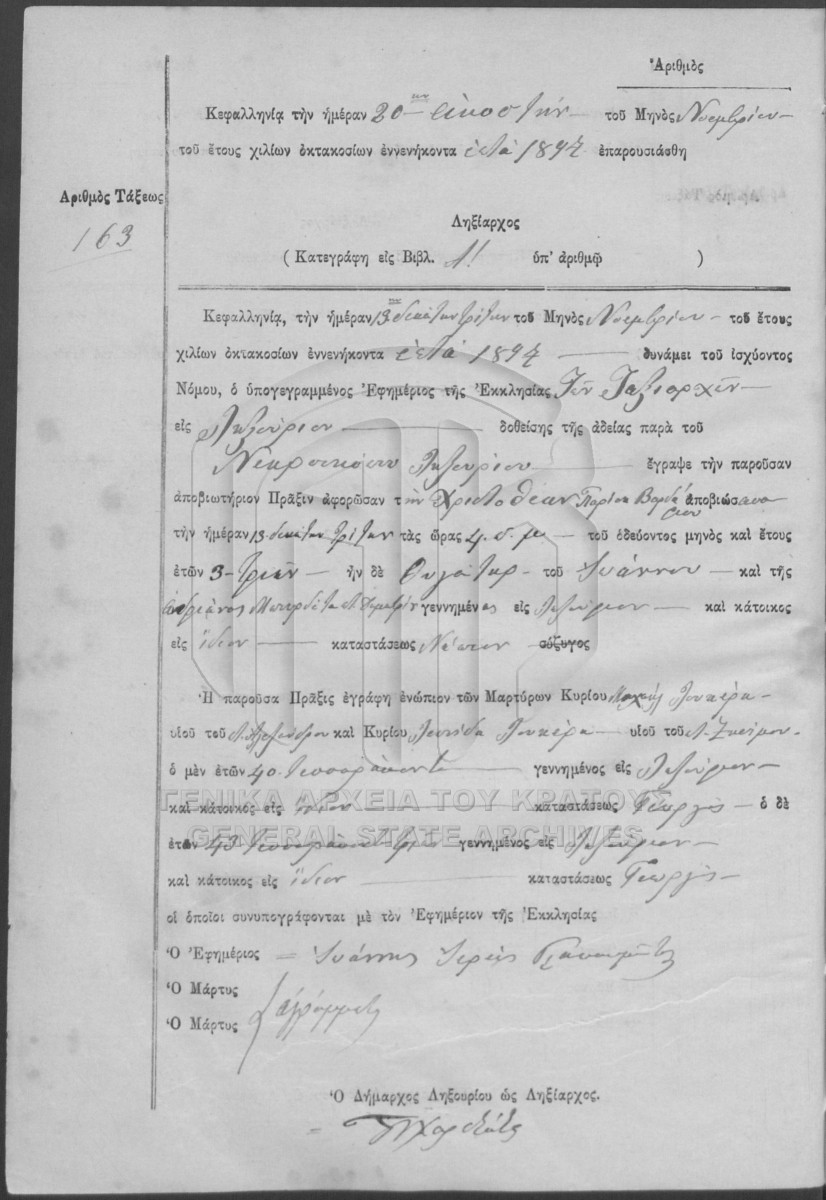 Ἀριθμὸς
Κεφαλληνίᾳ τὴν ἡμέραν 20 εἰκοστὴν τοῦ Μηνὸς Νοεμβρίου
τοῦ ἔτους χιλίων ὀκτακοσίων ἐννενήκοντα ἑπτὰ 1897 ἐπαρουσιάσθη
Ἀριθμὸς Τάξεως
163
Ληξίαρχος
( Κατεγράφη εἰς Βιβλ. Α! ὑπ' ἀριθμῷ )
Κεφαλληνίᾳ, τὴν ἡμέραν 13 δεκάτην τρίτην τοῦ Μηνὸς Νοεμβρίου τοῦ ἔτους
χιλίων ὀκτακοσίων ἐννενήκοντα ἑπτὰ 1897 δυνάμει τοῦ ἰσχύοντος
Νόμου, ὁ ὑπογεγραμμένος Ἐφημέριος τῆς Ἐκκλησίας Τῶν Ταξιαρχῶν
εἰς Ληξούριον δοθείσης τῆς ἀδείας παρὰ τοῦ
Ληξουρίου ἔγραψε τὴν παροῦσαν
ἀποβιωτήριον Πρᾶξιν ἀφορῶσαν τὴν ἀποβιώσασαν
τὴν ἡμέραν 13 δεκάτην τρίτην τὰς ὥρας 4 μ. τοῦ ὁδεύοντος μηνὸς καὶ ἔτους
ἐτῶν 3 τριῶν ἦν δὲ θυγάτηρ τοῦ Ἰωάννου καὶ τῆς
γεννημένος εἰς Ληξούριον καὶ κάτοικος
εἰς ἴδιον καταστάσεως Νήπιον σύζυγος
Ἡ παροῦσα Πρᾶξις ἐγράφη ἐνώπιον τῶν Μαρτύρων Κυρίου Λουκέρη
υἱοῦ τοῦ καὶ Κυρίου Λεωνίδα Λουκέρη υἱοῦ τοῦ
ὁ μὲν ἐτῶν 40 τεσσαράκοντα γεννημένος εἰς Ληξούριον
καὶ κάτοικος εἰς ἴδιον καταστάσεως Γεωργὸς ὁ δὲ
ἐτῶν 43 γεννημένος εἰς Ληξούριον
καὶ κάτοικος εἰς ἴδιον καταστάσεως Γεωργὸς
οἱ ὁποῖοι συνυπογράφονται μὲ τὸν Ἐφημέριον τῆς Ἐκκλησίας
Ὁ Ἐφημέριος Ἰωάννης Ἱερεὺς
Ὁ Μάρτυς
Ὁ Μάρτυς ἀγράμματοι
Ὁ Δήμαρχος Ληξουρίου ὡς Ληξίαρχος.
ΓΕΝΙΚΑ ΑΡΧΕΙΑ ΤΟΥ ΚΡΑΤΟΥΣ
GENERAL STATE ARCHIVES